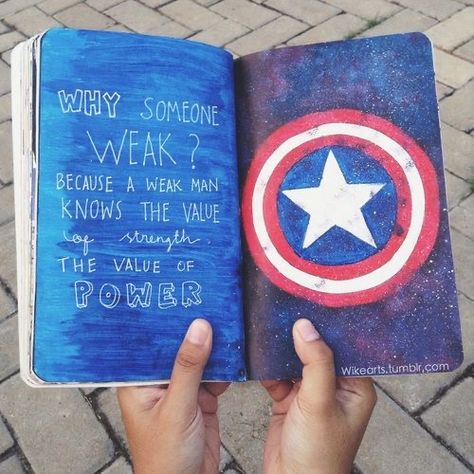 WHY SOMEONE
WEAK?
BECAUSE A WEAK MAN
KNOWS THE VALUE
of strength.
THE VALUE OF
POWER
Wikearts.tumblr.com